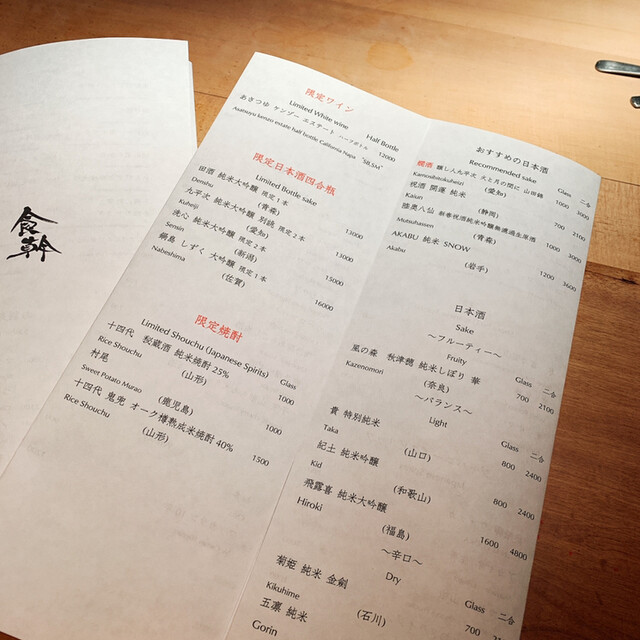 食幹
限定ワイン
Limited White wine
Half Bottle
あさつゆ ケンゾー エステート ハーフボトル 12000
Asatsuyu kenzo estate half bottle California Napa
限定日本酒四合瓶
Limited Bottle sake
田酒 純米大吟醸 限定1本
Denshu (青森) 13000
九平次 純米大吟醸 別誂 限定2本
Kuheiji (愛知) 13000
洗心 純米大吟醸 限定2本
Sensin (新潟) 15000
鍋島 しずく 大吟醸 限定1本
Nabeshima (佐賀) 16000
限定焼酎
Limited Shouchu (Japanese Spirits)
Glass
十四代 秘蔵酒 純米焼酎 25%
Rice Shouchu (山形) 1000
村尾
Sweet Potato Murao (鹿児島) 1000
十四代 鬼兜 オーク樽熟成米焼酎 40%
Rice Shouchu (山形) 1500
おすすめの日本酒
Recommended sake
Glass 二合
醸し人九平次 火と月の間に 山田錦
Kamoshibitokuheizi (愛知) 1000 3000
祝酒 開運 純米
Kaiun (静岡) 700 2100
陸奥八仙 新春祝酒純米吟醸無濾過生原酒
Mutsuhassen (青森) 1000 3000
AKABU 純米 SNOW
Akabu (岩手) 1200 3600
日本酒
Sake
～フルーティー～
Fruity
Glass 二合
風の森 秋津穂 純米しぼり華
Kazenomori (奈良) 700 2100
～バランス～
Light
Glass 二合
貴 特別純米
Taka (山口) 800 2400
紀土 純米吟醸
Kid (和歌山) 800 2400
飛露喜 純米大吟醸
Hiroki (福島) 1600 4800
～辛口～
Dry
Glass 二合
菊姫 純米 金劍
Kikuhime (石川) 700
五凛 純米
Gorin